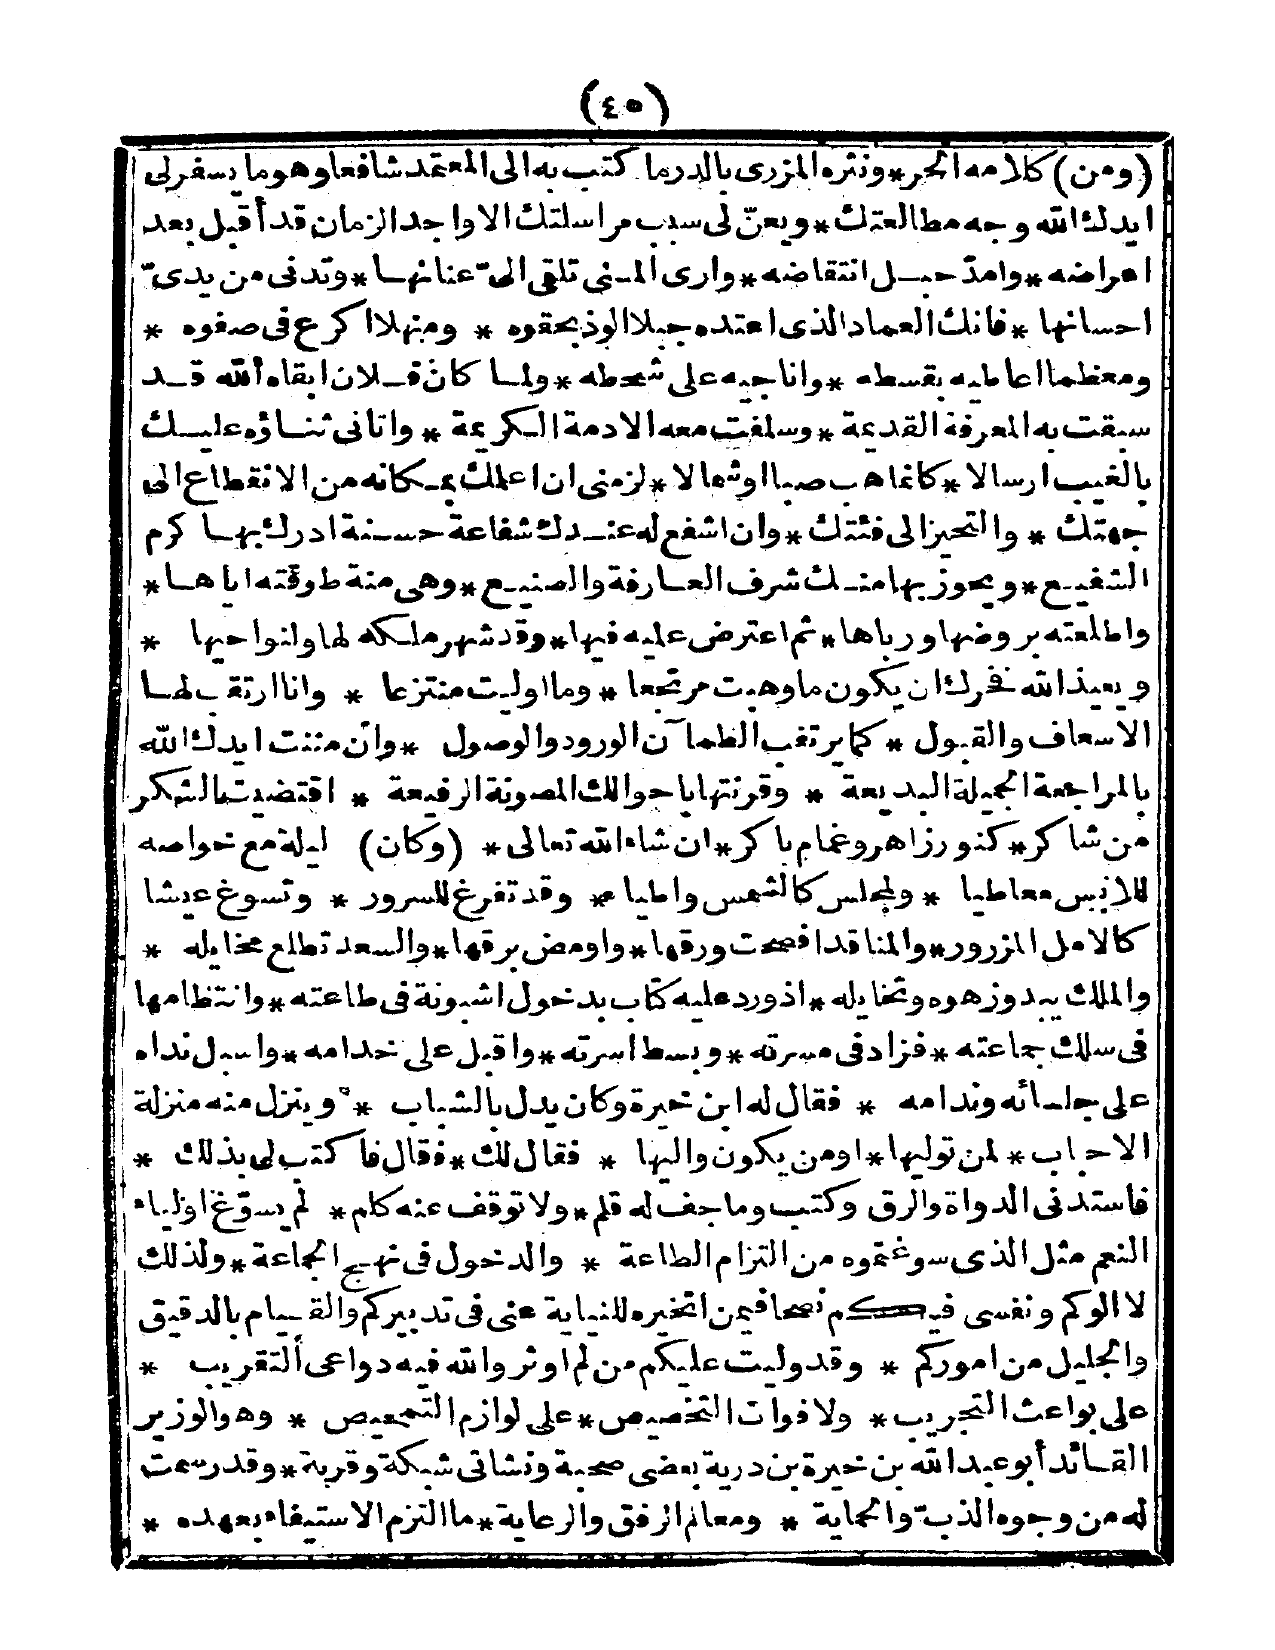 (٤٥)
(ومن) كلامه الحر*ونثره المزرى بالدر ما كتب به الى المعتمد شافعا وهو ما يسفر لى
ايدك الله وجه مطالعتك*ويعنّ لى سبب مراسلتك الا واجد الزمان قد أقبل بعد
اعراضه*وامدّ حبل انتقاضه*وارى المنى تلقى الىّ عنانها*وتدنى من يدىّ
احسانها*فانك العماد الذى اعتده جبلا الوذ بحقوه * ومنهلا اكرع فى صفوه *
ومعظما اعاطيه بقسطه *واناجيه على شحطه*ولما كان فلان ابقاه الله قد
سبقت به المعرفة القديمة*وسلفت معه الاذمة الكريمة* واتانى ثناؤه عليك
بالغيب ارسالا*كانما هب صبا او شمالا*لزمنى ان اعلمك بمكانه من الانقطاع الى
جهتك * والتحيز الى فئتك*وان اشفع له عندك شفاعة حسنة ادرك بها كرم
الشفيع*ويحوز بها منك شرف العارفة والصنيع*وهى منة طوقته اياها*
واطلعته بروضها ورباها*ثم اعترض عليه فيها*وقد شهر ملكه لها ولنواحيها *
ويعيذ الله فخرك ان يكون ما وهبت مرتجعا *وما اوليت منتزعا * وانا ارتقب لها
الاسعاف والقبول * كما يرتقب الظمآن الورود والوصول *وان مننت ايدك الله
بالمراجعة الجميلة البديعة * وقرنتها باحوالك المصونة الرفيعة * اقتضيت بالشكر
من شاكر*كنور زاهر وغمام باكر*ان شاء الله تعالى* (وكان) ليلة مع خواصه
للانس معاطيا * ولمجلس كالشمس واطيا * وقد تفرغ للسرور * وتسوغ عيشا
كالامل المزرور*والمنا قد افصحت ورقها*واومض برقها*والسعد تطلع مخايله *
والملك يبدو زهوه وتخايله *اذ ورد عليه كتاب بدخول اشبونة فى طاعته*وانتظامها
فى سلك جماعته *فزاد فى مسرته*وبسط اسرته*واقبل على خدامه*واسبل نداه
على جلسائه وندامه * فقال له ابن خيرة وكان يدل بالشباب * وينزل منه منزلة
الاحباب* لمن توليها*او من يكون واليها * فقال لك*فقال فاكتب لى بذلك *
فاستدنى الدواة والرق وكتب وما جف له قلم*ولا توقف عنه كلم* لم يسوّغ اولياء
النعم مثل الذى سوغتموه من التزام الطاعة * والدخول فى نهج الجماعة*ولذلك
لا الوكم ونفسى فيكم نصحا فيمن اتخيره للنيابة عنى فى تدبيركم والقيام بالدقيق
والجليل من اموركم * وقد وليت عليكم من لم اوثر والله فيه دواعى التقريب *
على بواعث التجريب* ولا فوات التخصيص*على لوازم التمحيص * وهو الوزير
القائد أبو عبد الله بن خيرة بن درية بعضى صحبة ونشاتى شبكة وقربة*وقد رسمت
له من وجوه الذبّ والحماية * ومعالم الرفق والرعاية*ما التزم الاستيفاء بعهده *